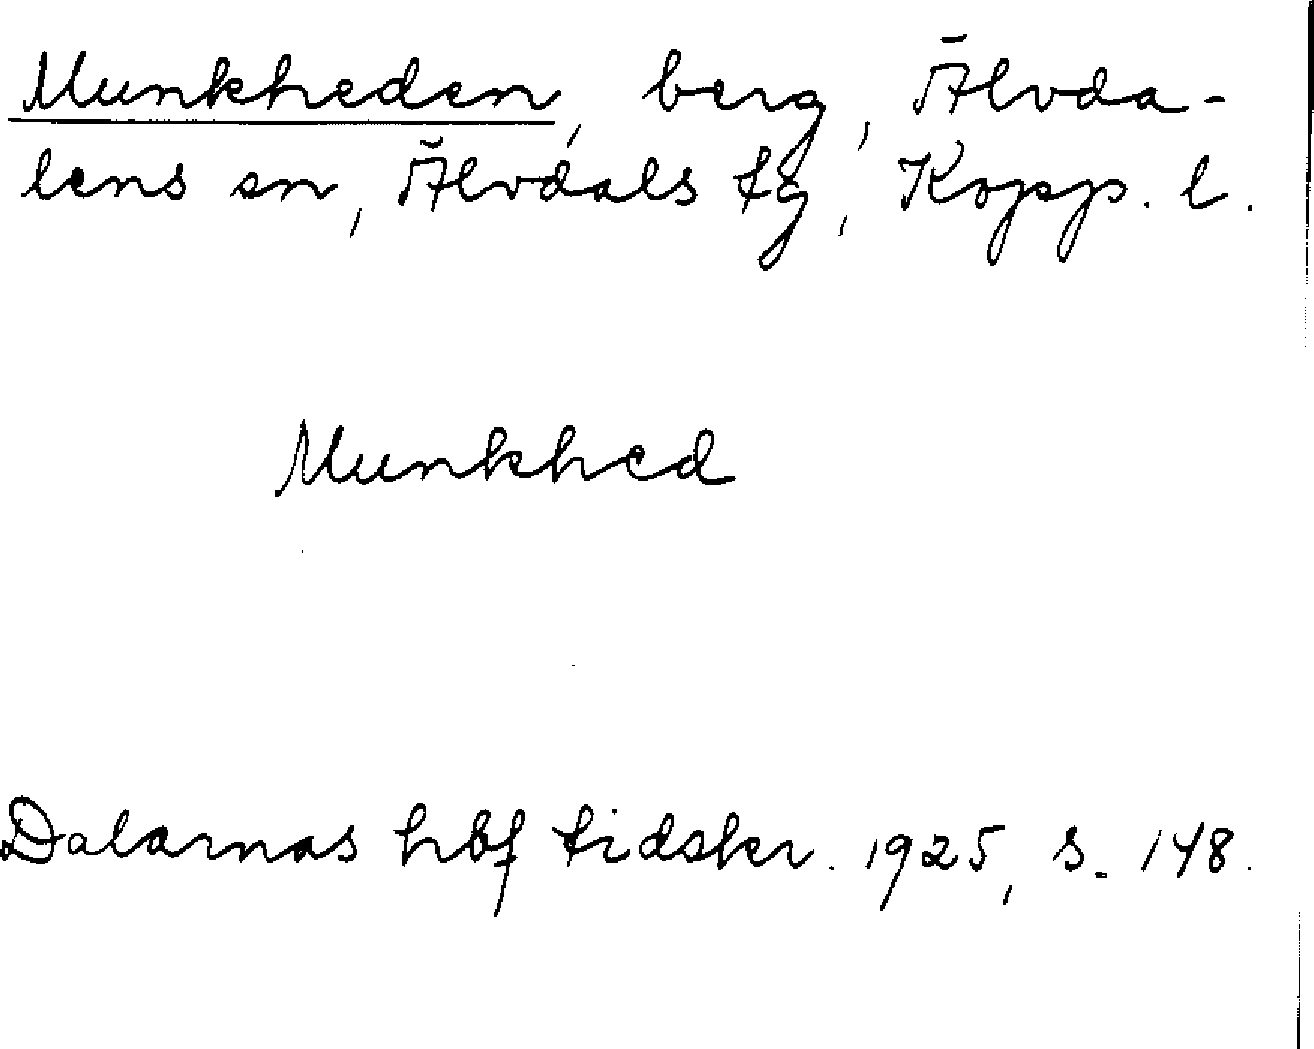 Munkheden, berg, Älvda-
lens sn, Älvdals tg, Kopp. l.
Munkhed
Dalarnas hbf tidskr. 1925, s. 148.